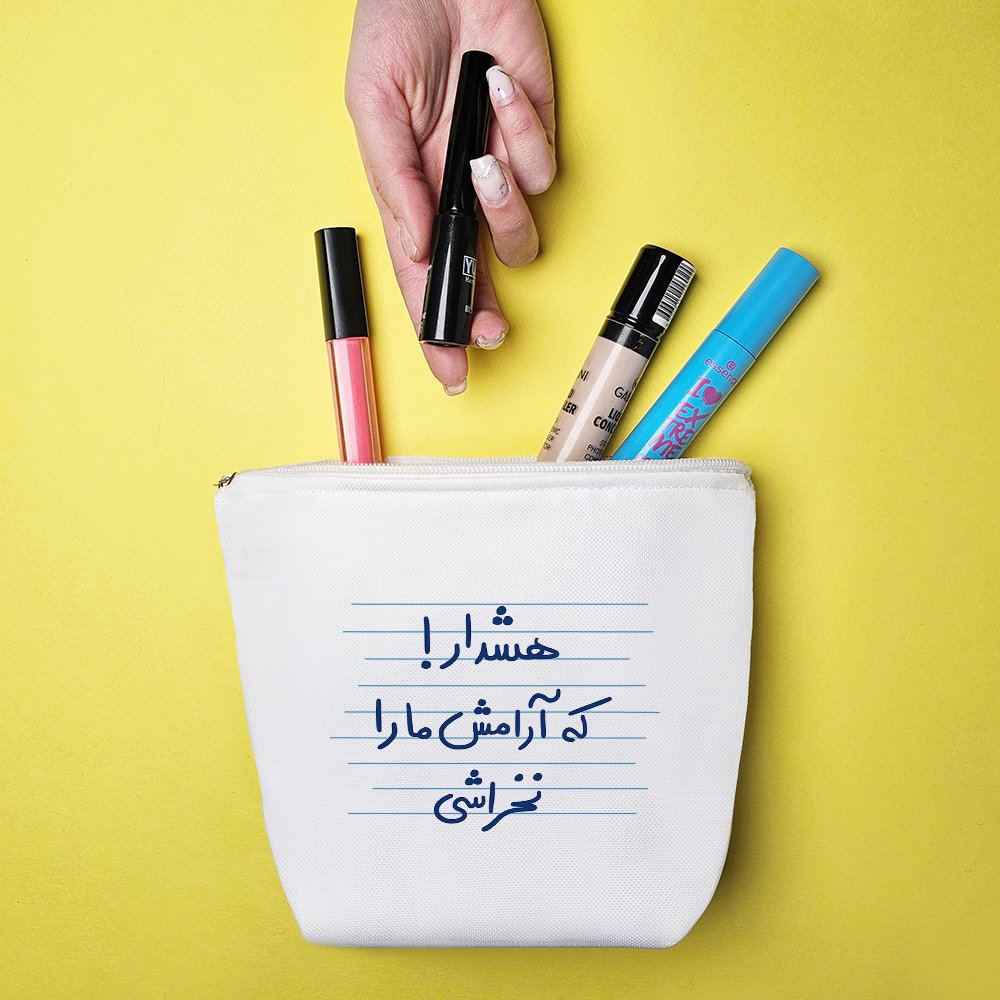 YU
NI
LER
GA
LIQ
CONC
essence
I
EX
TRE
ME
هشدار!
که آرامش ما را
نخراشی